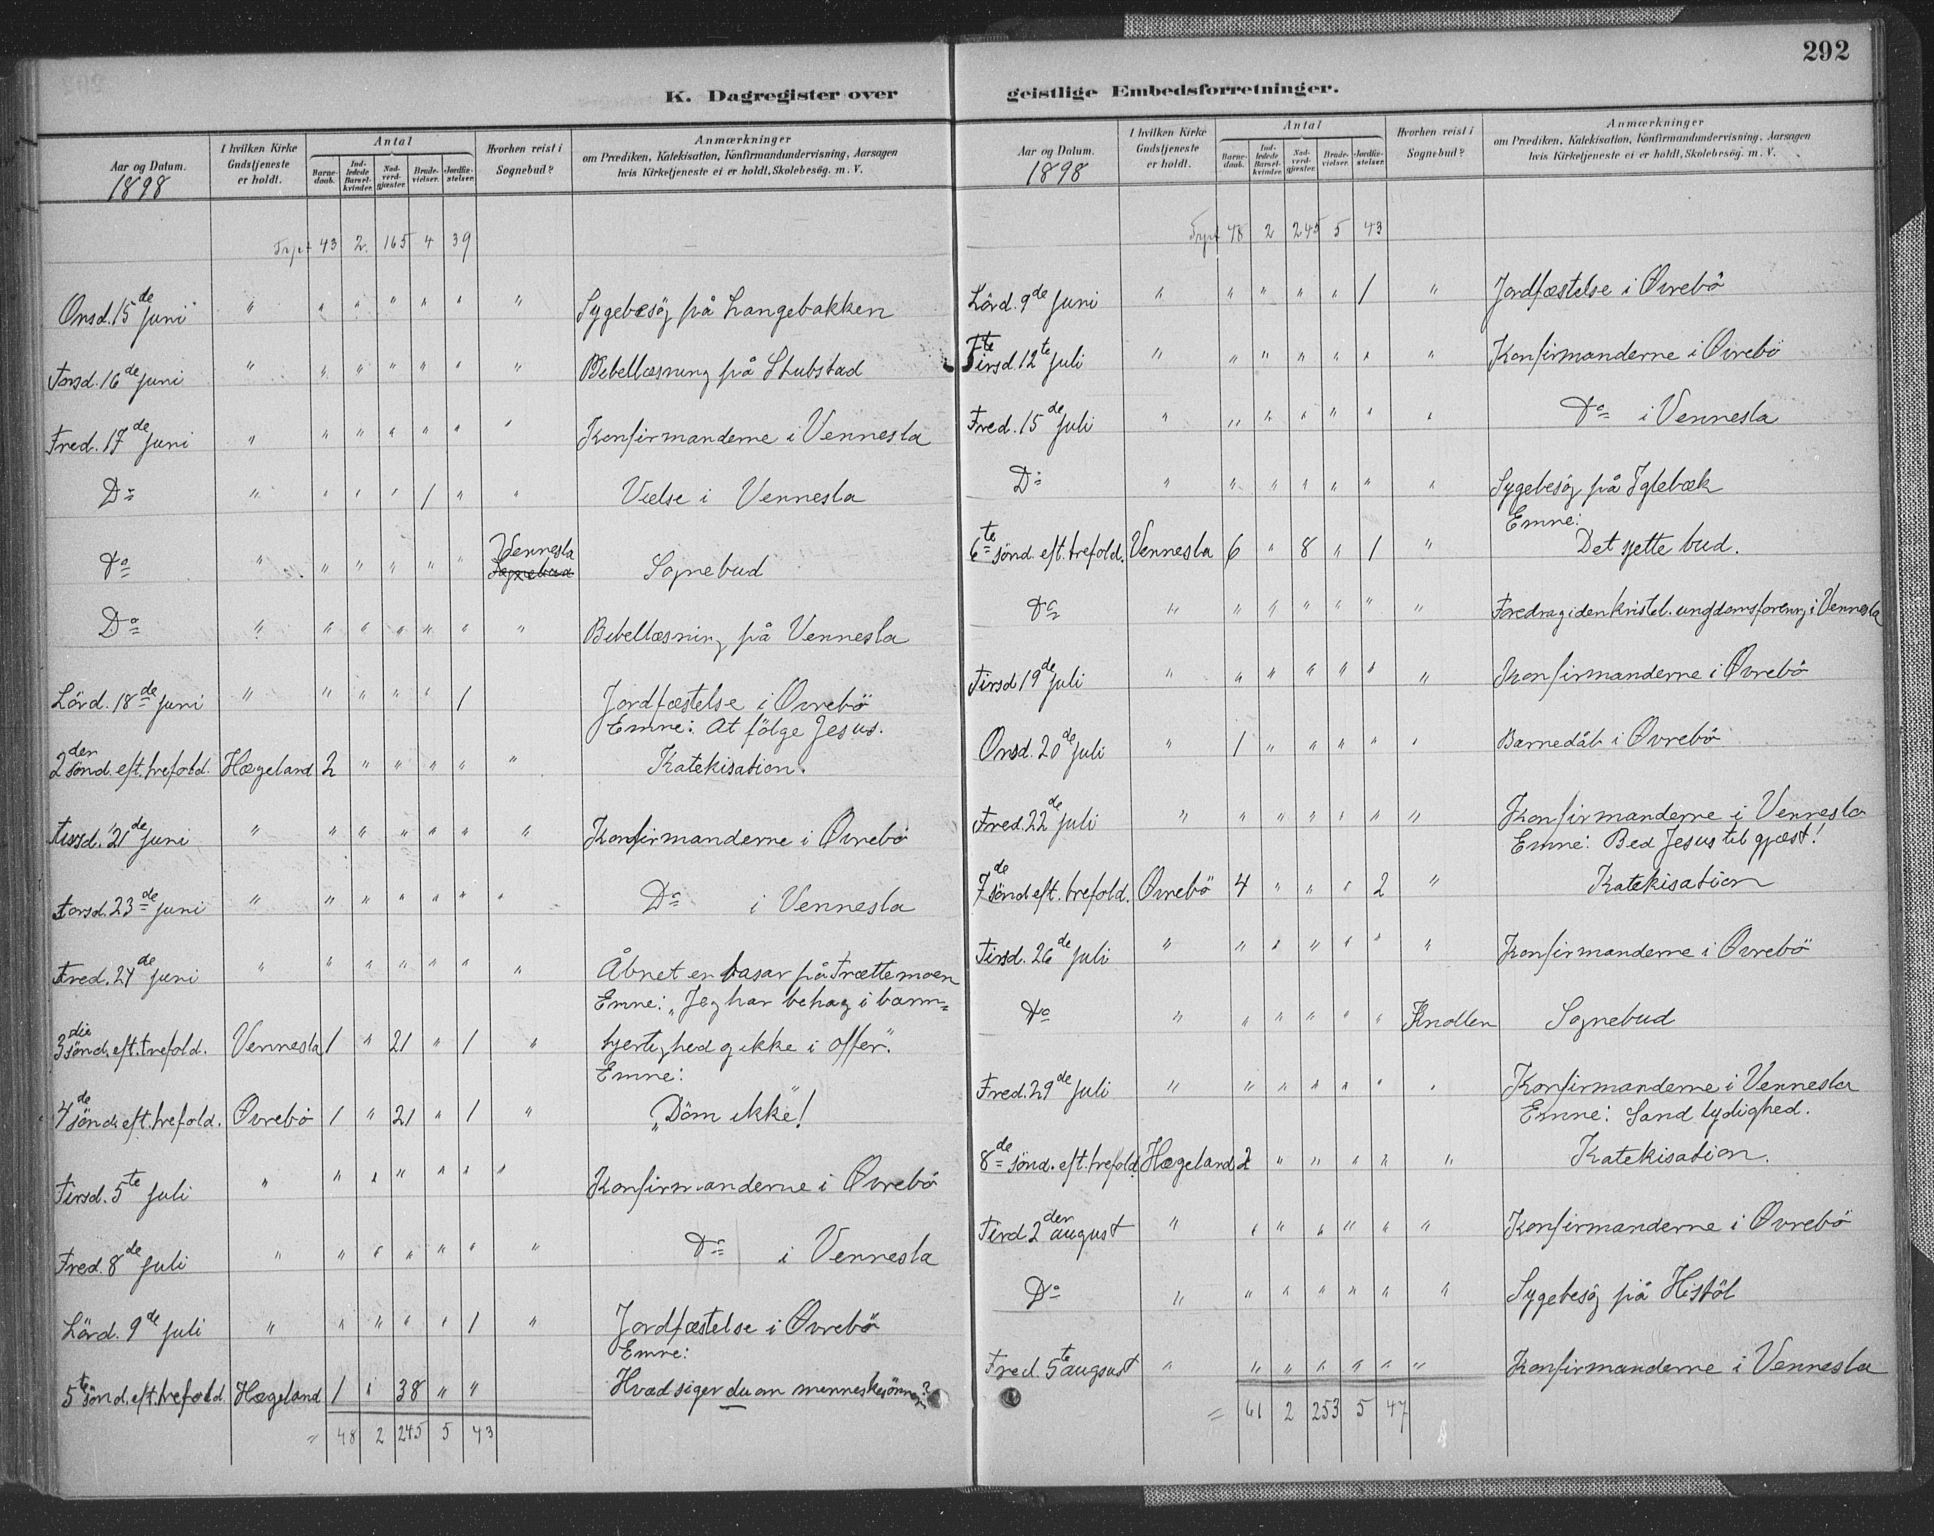 292
K. Dagregister over geistlige Embedsforretninger.
Aar og Datum. 1898 | I hvilken Kirke Gudstjeneste er holdt. | Antal: Barnedaab. Indledede Barselkvinder. Nadverdgjæster. Brudevielser. Jordfæstelser. | Hvorhen reist i Sognebud? | Anmærkninger om Prædiken, Katekisation, Konfirmandundervisning, Aarsagen hvis Kirketjeneste ei er holdt, Skolebesøg. m. V.
Trpt 43 2. 165 4 39
Onsd. 15de juni " " " " " " " Sygebesög på Langebakken
Torsd. 16de juni " " " " " " " Bibellæsning på Stubstad
Fred. 17de juni " " " " " " " Konfirmanderne i Vennesla
Do " " " " 1 " " Vielse i Vennesla
Do " " " " " " Vennesla Sognebud Sognebud
Do " " " " " " " Bibellæsning på Vennesla
Lörd. 18de juni " " " " " 1 Jordfæstelse i Øvrebö
2den sönd. eft. trefold. Hægeland 2 " " " " " Emne: At fölge Jesus.
Katekisation.
Tirsd. 21de juni " " " " " " " Konfirmanderne i Øvrebö
Torsd. 23de juni " " " " " " " Do i Vennesla
Fred. 24de juni " " " " " " " Åbnet en basar på Trættemoen
3die sönd. eft. trefold. Vennesla 1 " 21 " 1 " Emne: "Jeg har behag i barm=
hjertighed og ikke i offer".
4de sönd. eft. trefold. Øvrebö 1 " 21 " 1 " Emne:
"Döm ikke"!
Tirsd. 5te juli " " " " " " " Konfirmanderne i Øvrebö
Fred. 8de juli " " " " " " " Do i Vennesla
Lörd. 9de juli " " " " " 1 " Jordfæstelse i Øvrebö
5te sönd. eft. trefold Hægeland 1 " 38 " " Emne:
Hvad siger du om menneskesönnen?
= 48 2 245 5 43
Aar og Datum. 1898 | I hvilken Kirke Gudstjeneste er holdt. | Antal: Barnedaab. Indledede Barselkvinder. Nadverdgjæster. Brudevielser. Jordfæstelser. | Hvorhen reist i Sognebud? | Anmærkninger om Prædiken, Katekisation, Konfirmandundervisning, Aarsagen hvis Kirketjeneste ei er holdt, Skolebesøg. m. V.
Trpt 48 2 245 5 43
Lörd. 9de juni " " " " " 1 " Jordfæstelse i Øvrebö
Tirsd. 12te juli " " " " " " " Konfirmanderne i Øvrebö
Fred. 15de juli " " " " " " " Do i Vennesla
Do " " " " " " " Sygebesög på Iglebæk
6te sönd. eft. trefold. Vennesla 6 " 8 " 1 " Emne:
Det sjette bud.
Do " " " " " " " Foredrag i den kristel. ungdomsforeng i Vennesla
Tirsd 19de juli " " " " " " " Konfirmanderne i Øvrebö
Onsd. 20de juli " 1 " " " " " Barnedåb i Øvrebö
Fred. 22de juli " " " " " " " Konfirmanderne i Vennesla
7de sönd eft. trefold. Øvrebö 4 " " " 2 " Emne: Bed Jesus til gjæst!
Katekisation
Tirsd. 26de juli " " " " " " " Konfirmanderne i Øvrebö
Do " " " " " " Knollen Sognebud
Fred. 29de juli " " " " " " " Konfirmanderne i Vennesla
8de sönd. eft. trefold. Hægeland 2 " " " " " Emne: Sand lydighed.
Katekisation.
Tirsd 2den august " " " " " " " Konfirmanderne i Øvrebö
Do " " " " " " " Sygebesög på Histöl
Fred. 5te augsust " " " " " " " Konfirmanderne i Vennesla
= 61 2 253 5 47